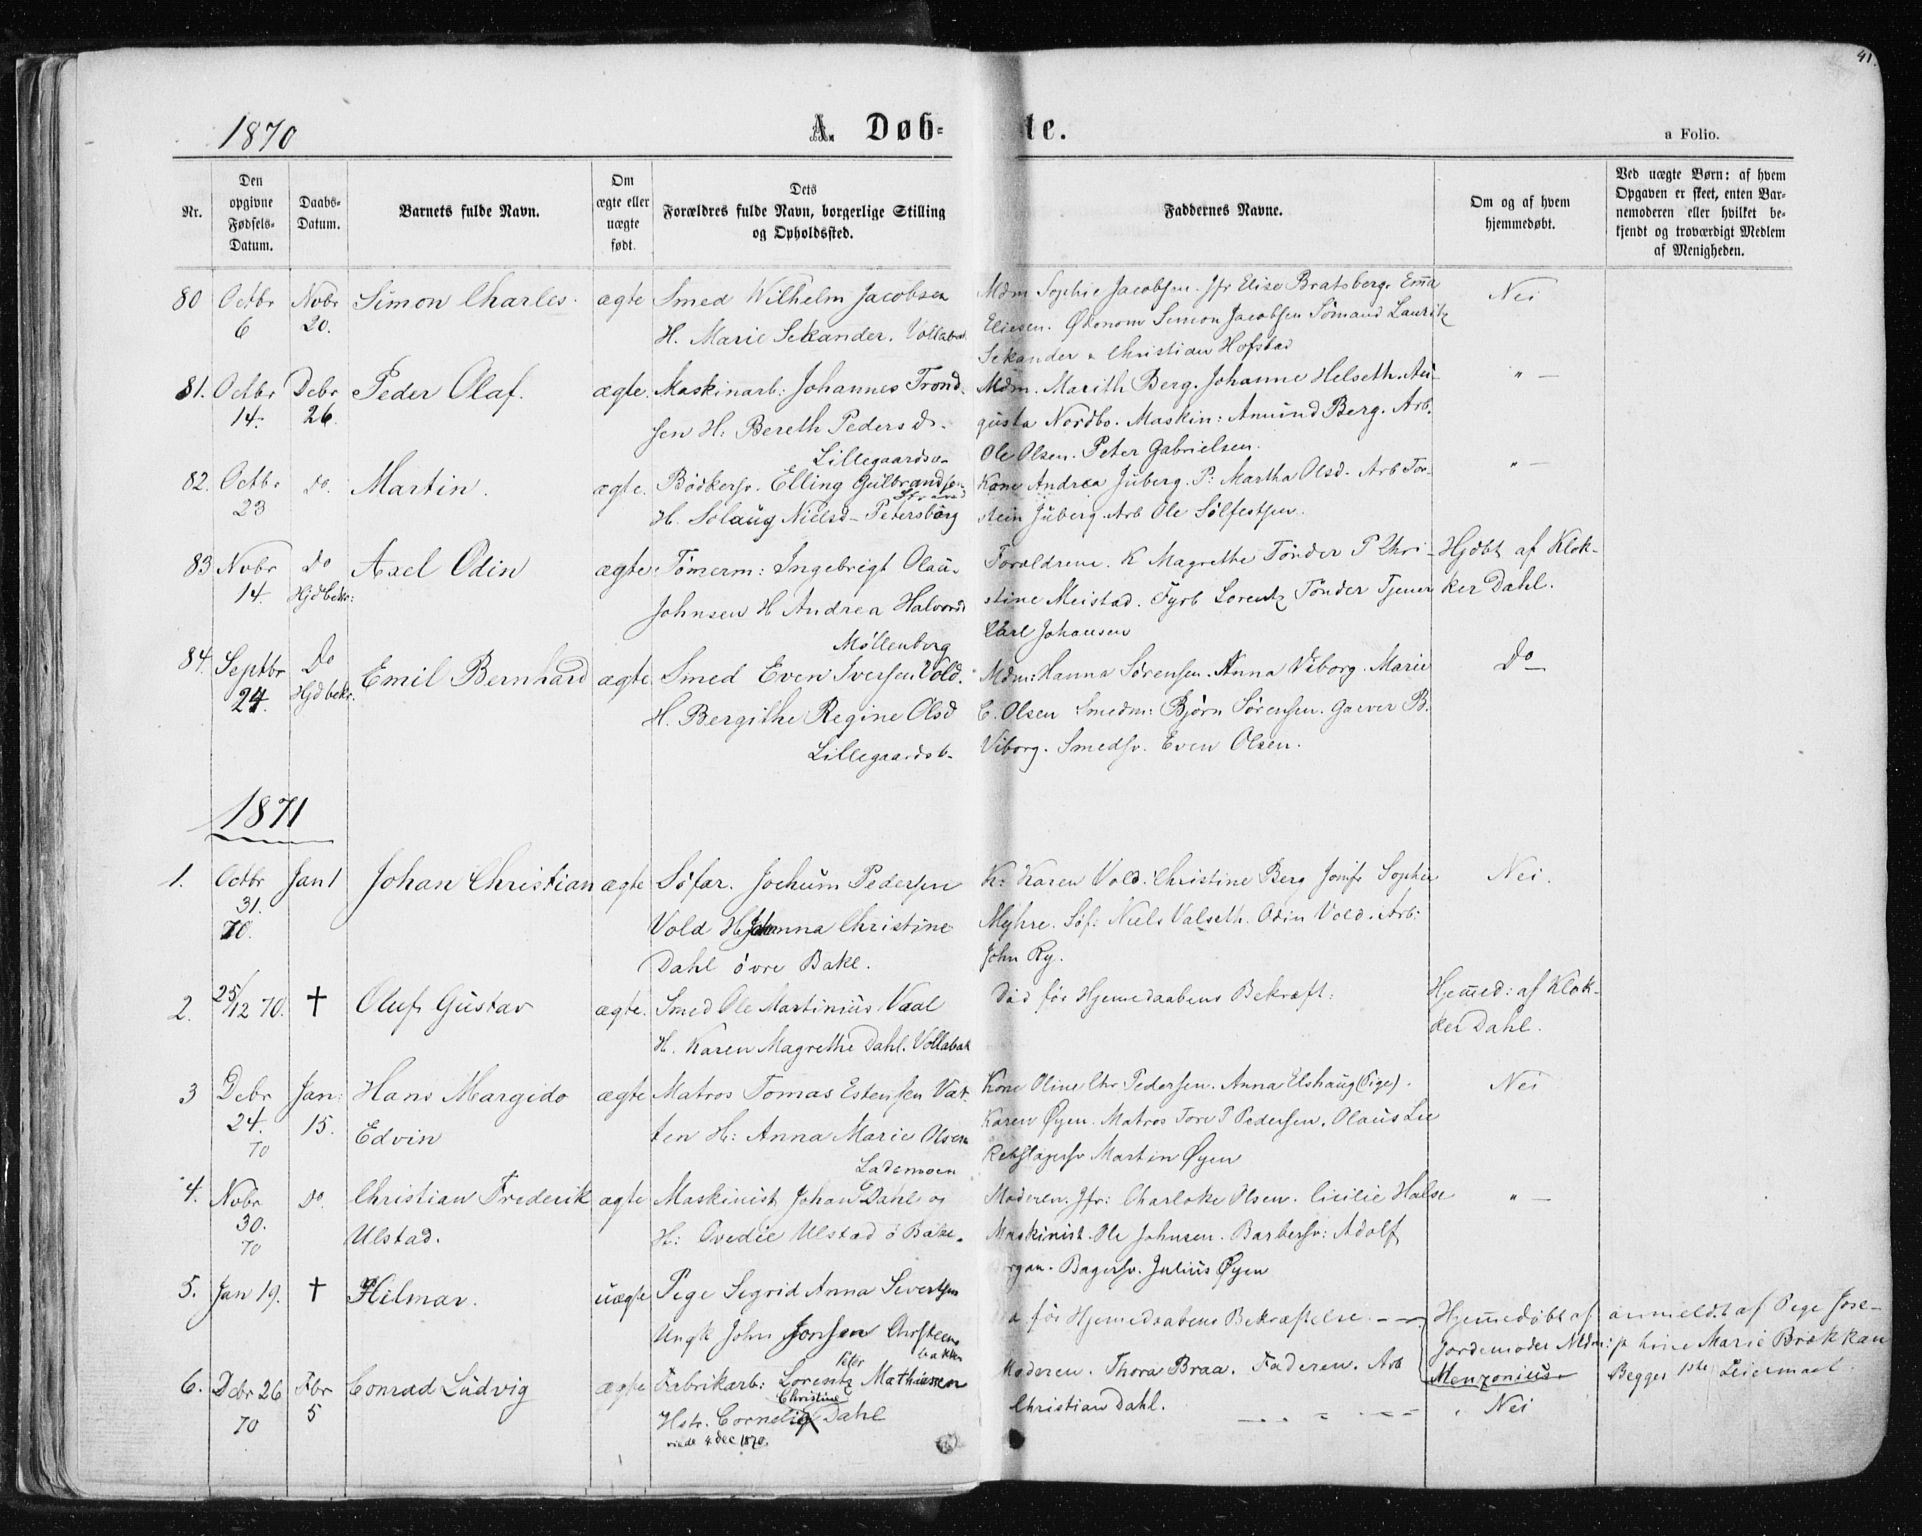 41.
1870
A. Døb-
te.
a Folio.
Nr.
Den opgivne Fødsels-Datum.
Daabs-Datum.
Barnets fulde Navn.
Om ægte eller uægte født.
Dets Forældres fulde Navn, borgerlige Stilling og Opholdssted.
Faddernes Navne.
Om og af hvem hjemmedøbt.
Ved uægte Børn: af hvem Opgaven er skeet, enten Barnemoderen eller hvilket bekjendt og troværdigt Medlem af Menigheden.
80 Octbr 6 Novbr 20. Simon Charles. ægte Smed Wilhelm Jacobsen
H. Marie Sekander. Vollabak
Mdm Sophie Jacobsen. Jfr Elise Bratsberg. Emma
Eliesen. Økonom Simon Jacobsen Sømand Lauritz
Sekander & Christian Hofstad
Nei
81. Octbr 14. Debr 26. Peder Olaf. ægte. Maskinarb: Johannes Trond-
sen H: Bereth Pedersd.
Lillegaardsb.
Mdm. Marith Berg. Johanne Helseth. Au-
gusta Nordbo. Maskin: Amund Berg. Arb.
Ole Olsen. Peter Gabrielsen.
" —
82. Octbr 23 Do. Martin. ægte. Bødkersv. Elling Gulbrandsen
Strand
H. Solaug Nielsd - Petersborg
Kone Andrea Juberg. P. Martha Olsd. Arb Tor-
stein Juberg. Arb Ole Solfestsen.
" —
83 Novbr 14. Do Hjdbekr: Axel Odin ægte Tømerm: Ingebrigt Olau-
Johnsen H Andrea Halvorsd
Møllenberg
Forældrene. K Magrethe Tønder P Chri-
stine Meistad. Fyrb Lorentz Tønder Tjener
Carl Johansen
Hjdbt af Klok-
ker Dahl.
84. Septbr 24. Do Hjdbekr. Emil Bernhard ægte Smed Even Iversen Vold.
H. Bergithe Regine Olsd
Lillegaardsb.
Mdm: Hanna Sørensen. Anna Viborg. Marie
C. Olsen Smedm: Bjørn Sørensen. Garver B.
Viborg. Smedsv. Even Olsen.
Do
1871
1. Octbr 31. 70. Jan 1 Johan Christian ægte Søfar. Jochum Pedersen
Vold H Johanna Christine
Dahl øvre Bakl.
K: Karen Vold. Christine Berg Jomfr Sophie
Myhre. Søf. Niels Valseth. Odin Vold. Arb:
John Ry.
Nei.
2. 25/12 70. † Oluf Gustav ægte. Smed Ole Martinius Vaal
H. Karen Magrethe Dahl. Vollabak
Død før Hjemedaabens Bekræft:
Hjemed: af Klok-
ker Dahl.
3 Debr 24. 70 Jan: 15. Hans Margido
Edvin
ægte Matros Tomas Estensen Vat-
ten H: Anna Marie Olsen
Lademoen
Kone Oline Chr Pedersen. Anna Elshaug (Pige).
Karen Øyen. Matros Tore P Pedersen. Olaus Lie
Rebslagersv Martin Øyen
Nei
4. Novbr 30. 70 Do. Christian Frederik
Ulstad.
ægte Maskinist Johan Dahl og
H: Ovedie Ulstad ø Bakl.
Moderen. Jfr: Charlotte Olsen. Cicilie Halse
Maskinist Ole Johnsen. Barbersv: Adolf
Bagersv. Julius Øyen
" —
5. Jan 19. † Hilmar. uægte Pige Sigrid Anna Sivertsen
Ungk John Jonsen Christens
bakken
før Hjemedaabens Bekræftelse. —
Hjemmedøbt af
Jordemoder Mdm:
Menzonius
anmeldt af Pige Jose-
phine Marie Brækkan
Begges 1ste Leiermaal
6. Debr 26 70 Fbr 5 Conrad Ludvig ægte Fabrikarb: Lorentz Peter Mathiesen
Christine
Hstr. Cornelia Dahl
viede 4 Dec 1870.
Moderen. Thora Braa. Faderen. Arb
Christian Dahl.
Nei